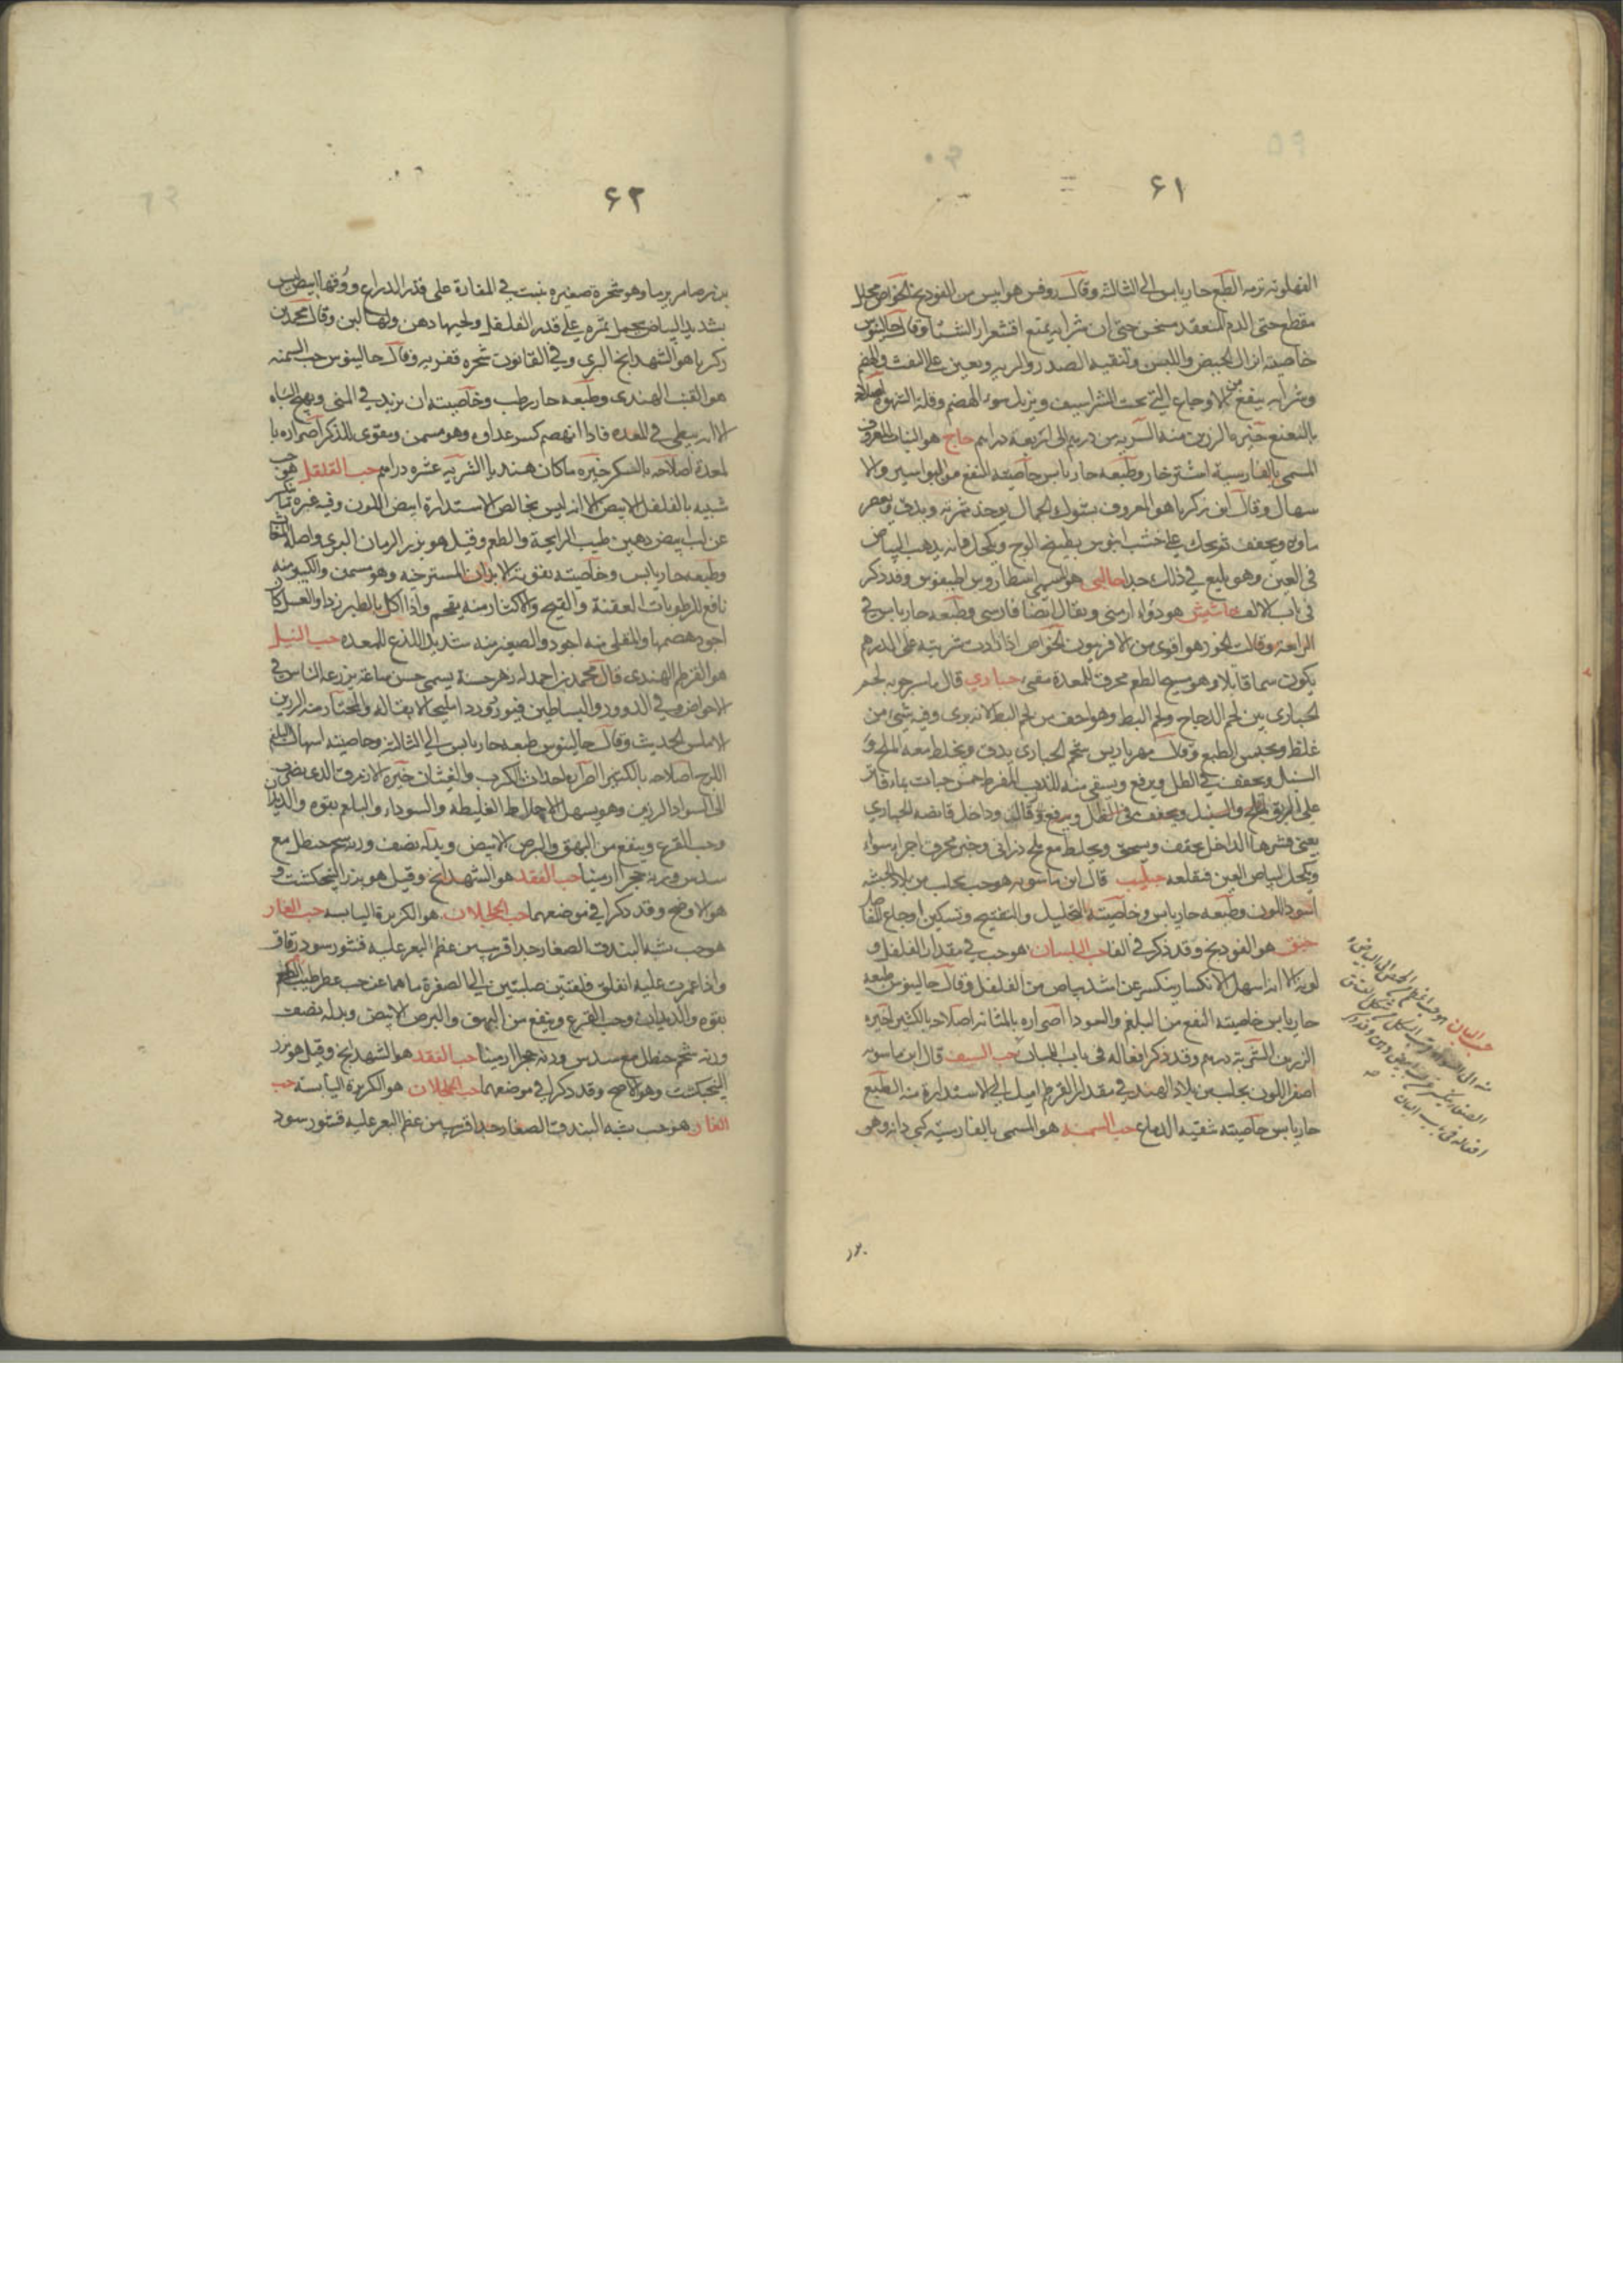 ۶۱
الطبع حار يابس الى الثالثة وقال روفس هو ايبس من الفودنج الخواص محلل
مقطع حتى الدم المنعقد مسخن حتى ان شرابه يمنع اقشعرار الشتا وقال جالينوس
خاصيته انزال الحيض واللبن وتنقيه الصدر والريه ويعين على النفث والهضم
وشرابه ينفع من الاوجاع التى تحت الشراسيف ويزيل سوء الهضم وقلة الشهوة اصلاحه
بالنعنع خيره الرزين منه الشربه من درهم الى اربعة دراهم حاج هو النبات المعروف
المسمى بالفارسية اشترخار وطبعه حار يابس خاصيته النفع من البواسير والا
سهال وقال ابن زكريا هو المعروف بشوك الجمال يوخذ ثمرته ويدق ويعصر
ماوه ويجفف ثم يحك على خشب ابنوس بطبيخ الوج ويكحل فانه يذهب البياض
فى العين وهو بليغ فى ذلك جدا حالبى هو المسمى اسطاروس اطيقوس وقد ذكر
فى باب الالف حاشيش هو دواء ارمنى ويقال ايضا فارسى وطبعه حار يابس فى
الرابعة وقالت الخوز هو اقوى من الافربيون الخواص اذا زادت شربته على الدرهم
يكون سما قاتلا وهو سيج الطعم محرق للمعدة مقيى حبارى قال ماسرجويه لحم
الحبارى بين لحم الدجاج ولحم البط وهو اخف من لحم البط لانه برى وفيه شئ من
غلظ ويحبس الطبع وقال مهرياريس شحم الحبارى يدق ويخلط معه الملح و
السنبل ويجفف فى الظل ويرفع ويسقى منه للذرب المفرط خمس حبات بماء فاتر
على الريق الملح والسنبل ويجفف فى الظل ويرفع وقال وداخل قانصة الحبارى
يعنى قشرها الداخل يجفف ويسحق ويخلط مع ملح دزانى وخبز محرق اجزاء سواء
ويكحل البياض العين فيقلعه حبليب قال ابن ماسويه هو حب يجلب من بلاد الحبشه
اسود اللون وطبعه حار يابس وخاصيته التحليل والتفتيح وتسكين اوجاع المفاصل
حبق هو الفودنج وقد ذكر فى الفا حب البلسان هو حب فى مقدار الفلفل و
لونه الا انه اسهل الانكسار ينكسر عن اشد بياض من الفلفل وقال جالينوس طبعه
حار يابس خاصيته النفع من البلغم والسودا اضراره بالمثانه اصلاحه بالكثيرا خيره
الزرين الشربة درهم وقد ذكر افعاله فى باب البا حب السيف قال ابن ماسويه
اصفر اللون يجلب من بلاد الهند فى مقدار القرطم اميل الى الاستدارة منه الطبع
حار يابس خاصيته تنقيه الدماغ حب السمنه هو المسمى بالفارسيه كبى دانه وهو
حب البان هو حب اعظم من الحمص الى البياض
افعاله فى باب البان
۶۲
وهو شجرة صغيره ينبت فى المفازة على قدر الذراع وورقها ابيض ليس
بشديد البياض يحمل ثمره على قدر الفلفل ولحيها دهن ولها لبن وقال محمد بن
زكريا هو الشهدانج البرى وفى القانون شجره قفريه وقال جالينوس حب السمنه
هو القنب الهندى وطبعه حار رطب وخاصيته ان يزيد فى المنى ويهيج الباه
الا انه يبطى فى المعده فاذا انهضم كسر غداوه وهو مسمن ومقوى للذكر اضراره با
لمعدة اصلاحه بالسكر خيره ما كان هنديا الشربه عشره دراهم حب القلقل هو حب
شبيه بالفلفل الابيض الا انه ليس بخالص الاستدارة ابيض اللون وفيه غبره
عن لب ابيض دهين طيب الرايحة والطعم وقيل هو بزر الرمان البرى واصله المغاث
وطبعه حار يابس وخاصيته تقوية الابدان المسترخيه وهو مسمن والكيموس منه
نافع للرطوبات العفنة والقيح والاكثار منه يقحم واذا اكل بالطبرزد او العسل كان
اجود هضمها والمقلى منه اجود والصغير منه شديد اللذع للمعده حب النيل
هو القرطم الهندى قال محمد بن احمد له زهر حسنة يسمى حسن ساعة يزرعه الناس فى
الاحواض وفى الدوور والبساطين فيورد وردا مليحا لا بقا له والمختار منه الرزين
الاملس الحديث وقال جالينوس طبعه حار يابس الى الثالثة وخاصيته اسهال البلغم
اللزج اصلاحه بالكثيرا اضراره احداث الكرب والغثيان خيره الازرق الذى يضرب
الى السواد الرزين وهو يسهل الاخلاط الغليظة والسوداء والبلغم بقوه والديدان
وحب القرع وينفع من البهق والبرص الابيض وبدله نصف وزنه شحم حنظل مع
سدس وزنه حجر ارمينا حب الفقد هو الشهدانج وقيل هو بزر البنجنكشت و
هو الاوضح وقد ذكرا فى موضعهما حب الجلجلان هو الكزبرة اليابسه حب الغار
هو حب شبه البندق الصغار جدا قريب من عظم البعر عليه قشور سود رقاق
واذا غمزت عليه انفلق فلقتين صلبتين الى الصفرة ما هما عن حب عطر طيب الطعم
بقوه والديدان وحب القرع وينفع من البهق والبرص الابيض وبدله نصف
وزنه شحم حنظل مع سدس وزنه حجر ارمينا حب الفقد هو الشهدانج وقيل هو بزر
البنجنكشت وهو الاصح وقد ذكرا فى موضعهما حب الجلجلان هو الكزبرة اليابسة حب
الغار هو حب شبه البندق الصغار جدا قريب من عظم البعر عليه قشور سود